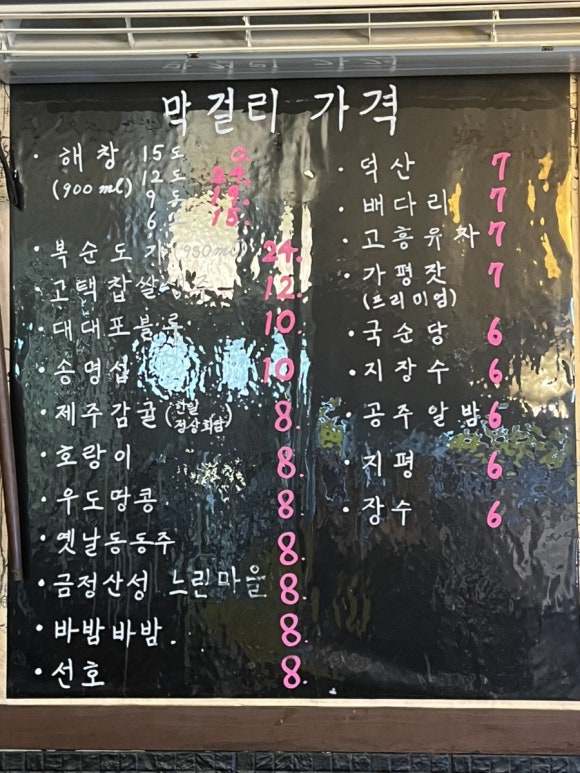 막걸리 가격
· 해창 15도
(900 ml) 12도
9도 19.
6" 15.
· 복순도가 (930ml) 24.
· 고택찹쌀생주 12.
· 대대포블루 10
· 송명섭 10
· 제주감귤 (한일정상회담) 8.
· 호랑이 8.
· 우도땅콩 8
· 옛날동동주 8.
· 금정산성 느린마을 8.
· 바밤바밤. 8.
· 선호 8.
· 덕산 7
· 배다리 7
· 고흥유자 7
· 가평잣 7
(프리미엄)
· 국순당 6
· 지장수 6
· 공주알밤 6
· 지평 6
· 장수 6